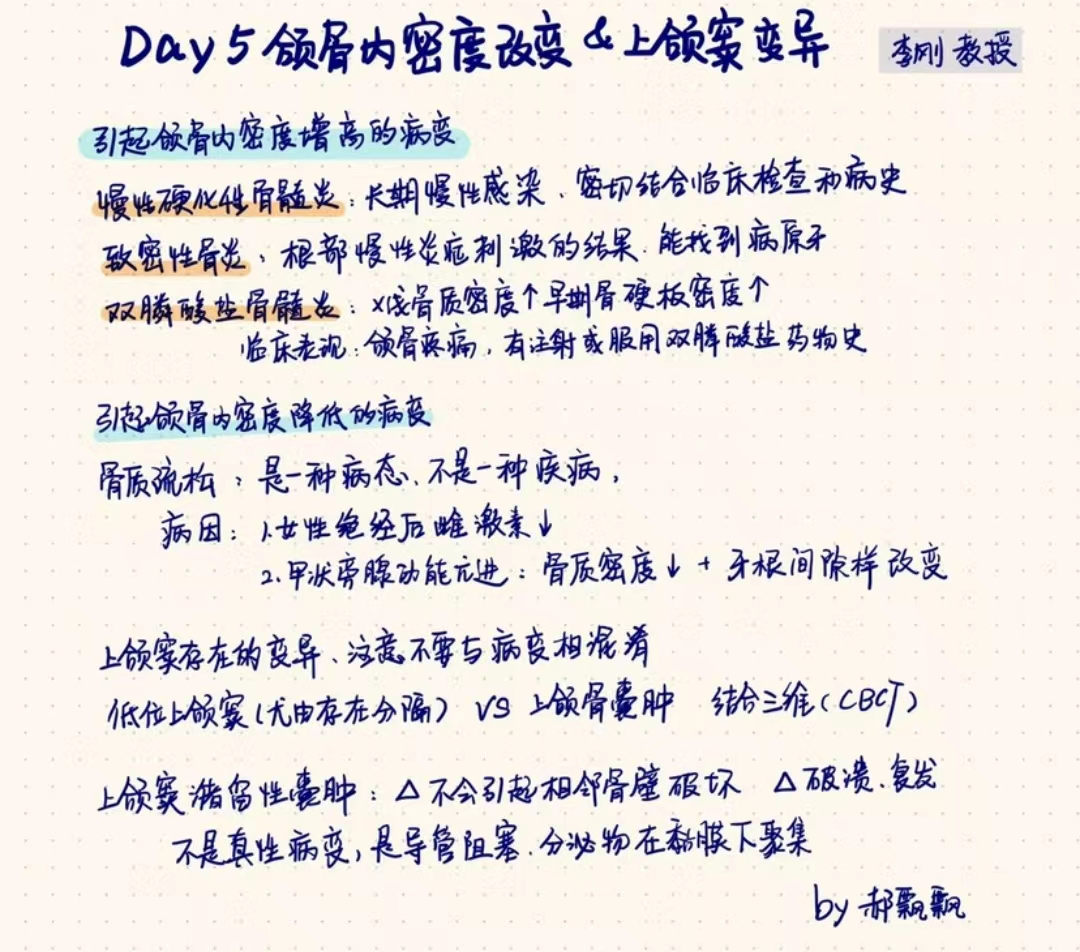 Day 5 颌骨内密度改变 & 上颌窦变异 李刚 教授
引起颌骨内密度增高的病变
慢性硬化性骨髓炎：长期慢性感染、密切结合临床检查和病史
致密性骨炎：根部慢性炎症刺激的结果、能找到病原牙
双膦酸盐骨髓炎：X线骨质密度↑早期骨硬板密度↑
临床表现：颌骨疼痛，有注射或服用双膦酸盐药物史
引起颌骨内密度降低的病变
骨质疏松：是一种病态、不是一种疾病，
病因：1.女性绝经后雌激素↓
2.甲状旁腺功能亢进：骨质密度↓ + 牙根间隙样改变
上颌窦存在的变异、注意不要与病变相混淆
低位上颌窦(尤由存在分隔) VS 上颌骨囊肿 结合三维(CBCT)
上颌窦潴留性囊肿：△不会引起相邻骨壁破坏 △破溃、复发
不是真性病变，是导管阻塞、分泌物在黏膜下聚集
by 郝飘飘